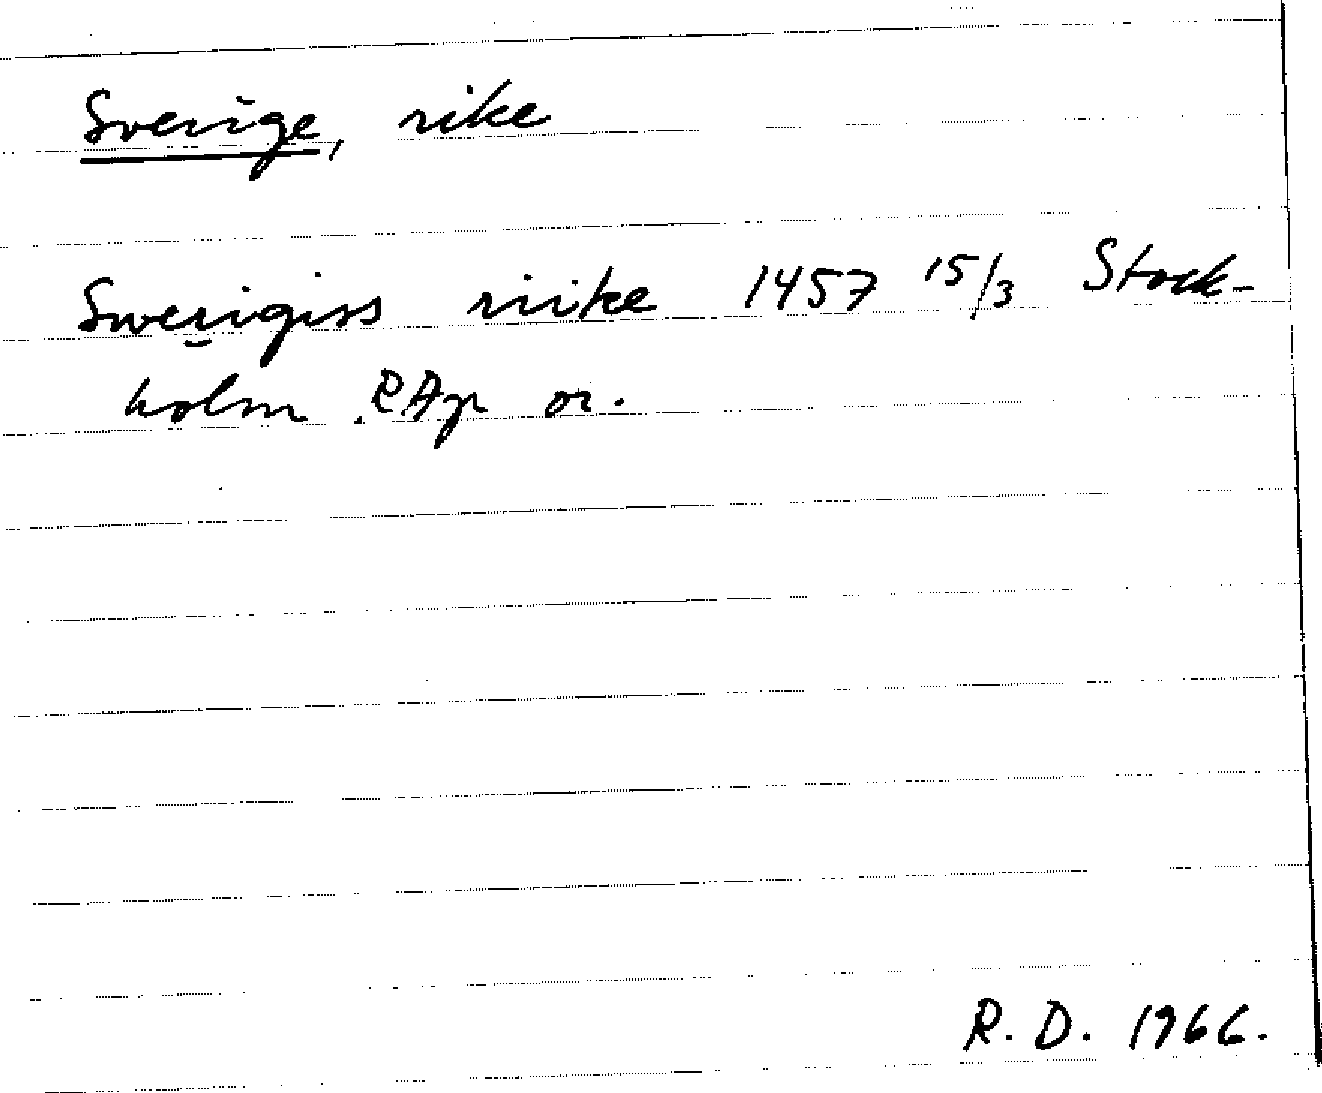 Sverige, rike
Swerigiss riike 1457 15/3 Stock-
holm RAp or.
R. D. 1966.